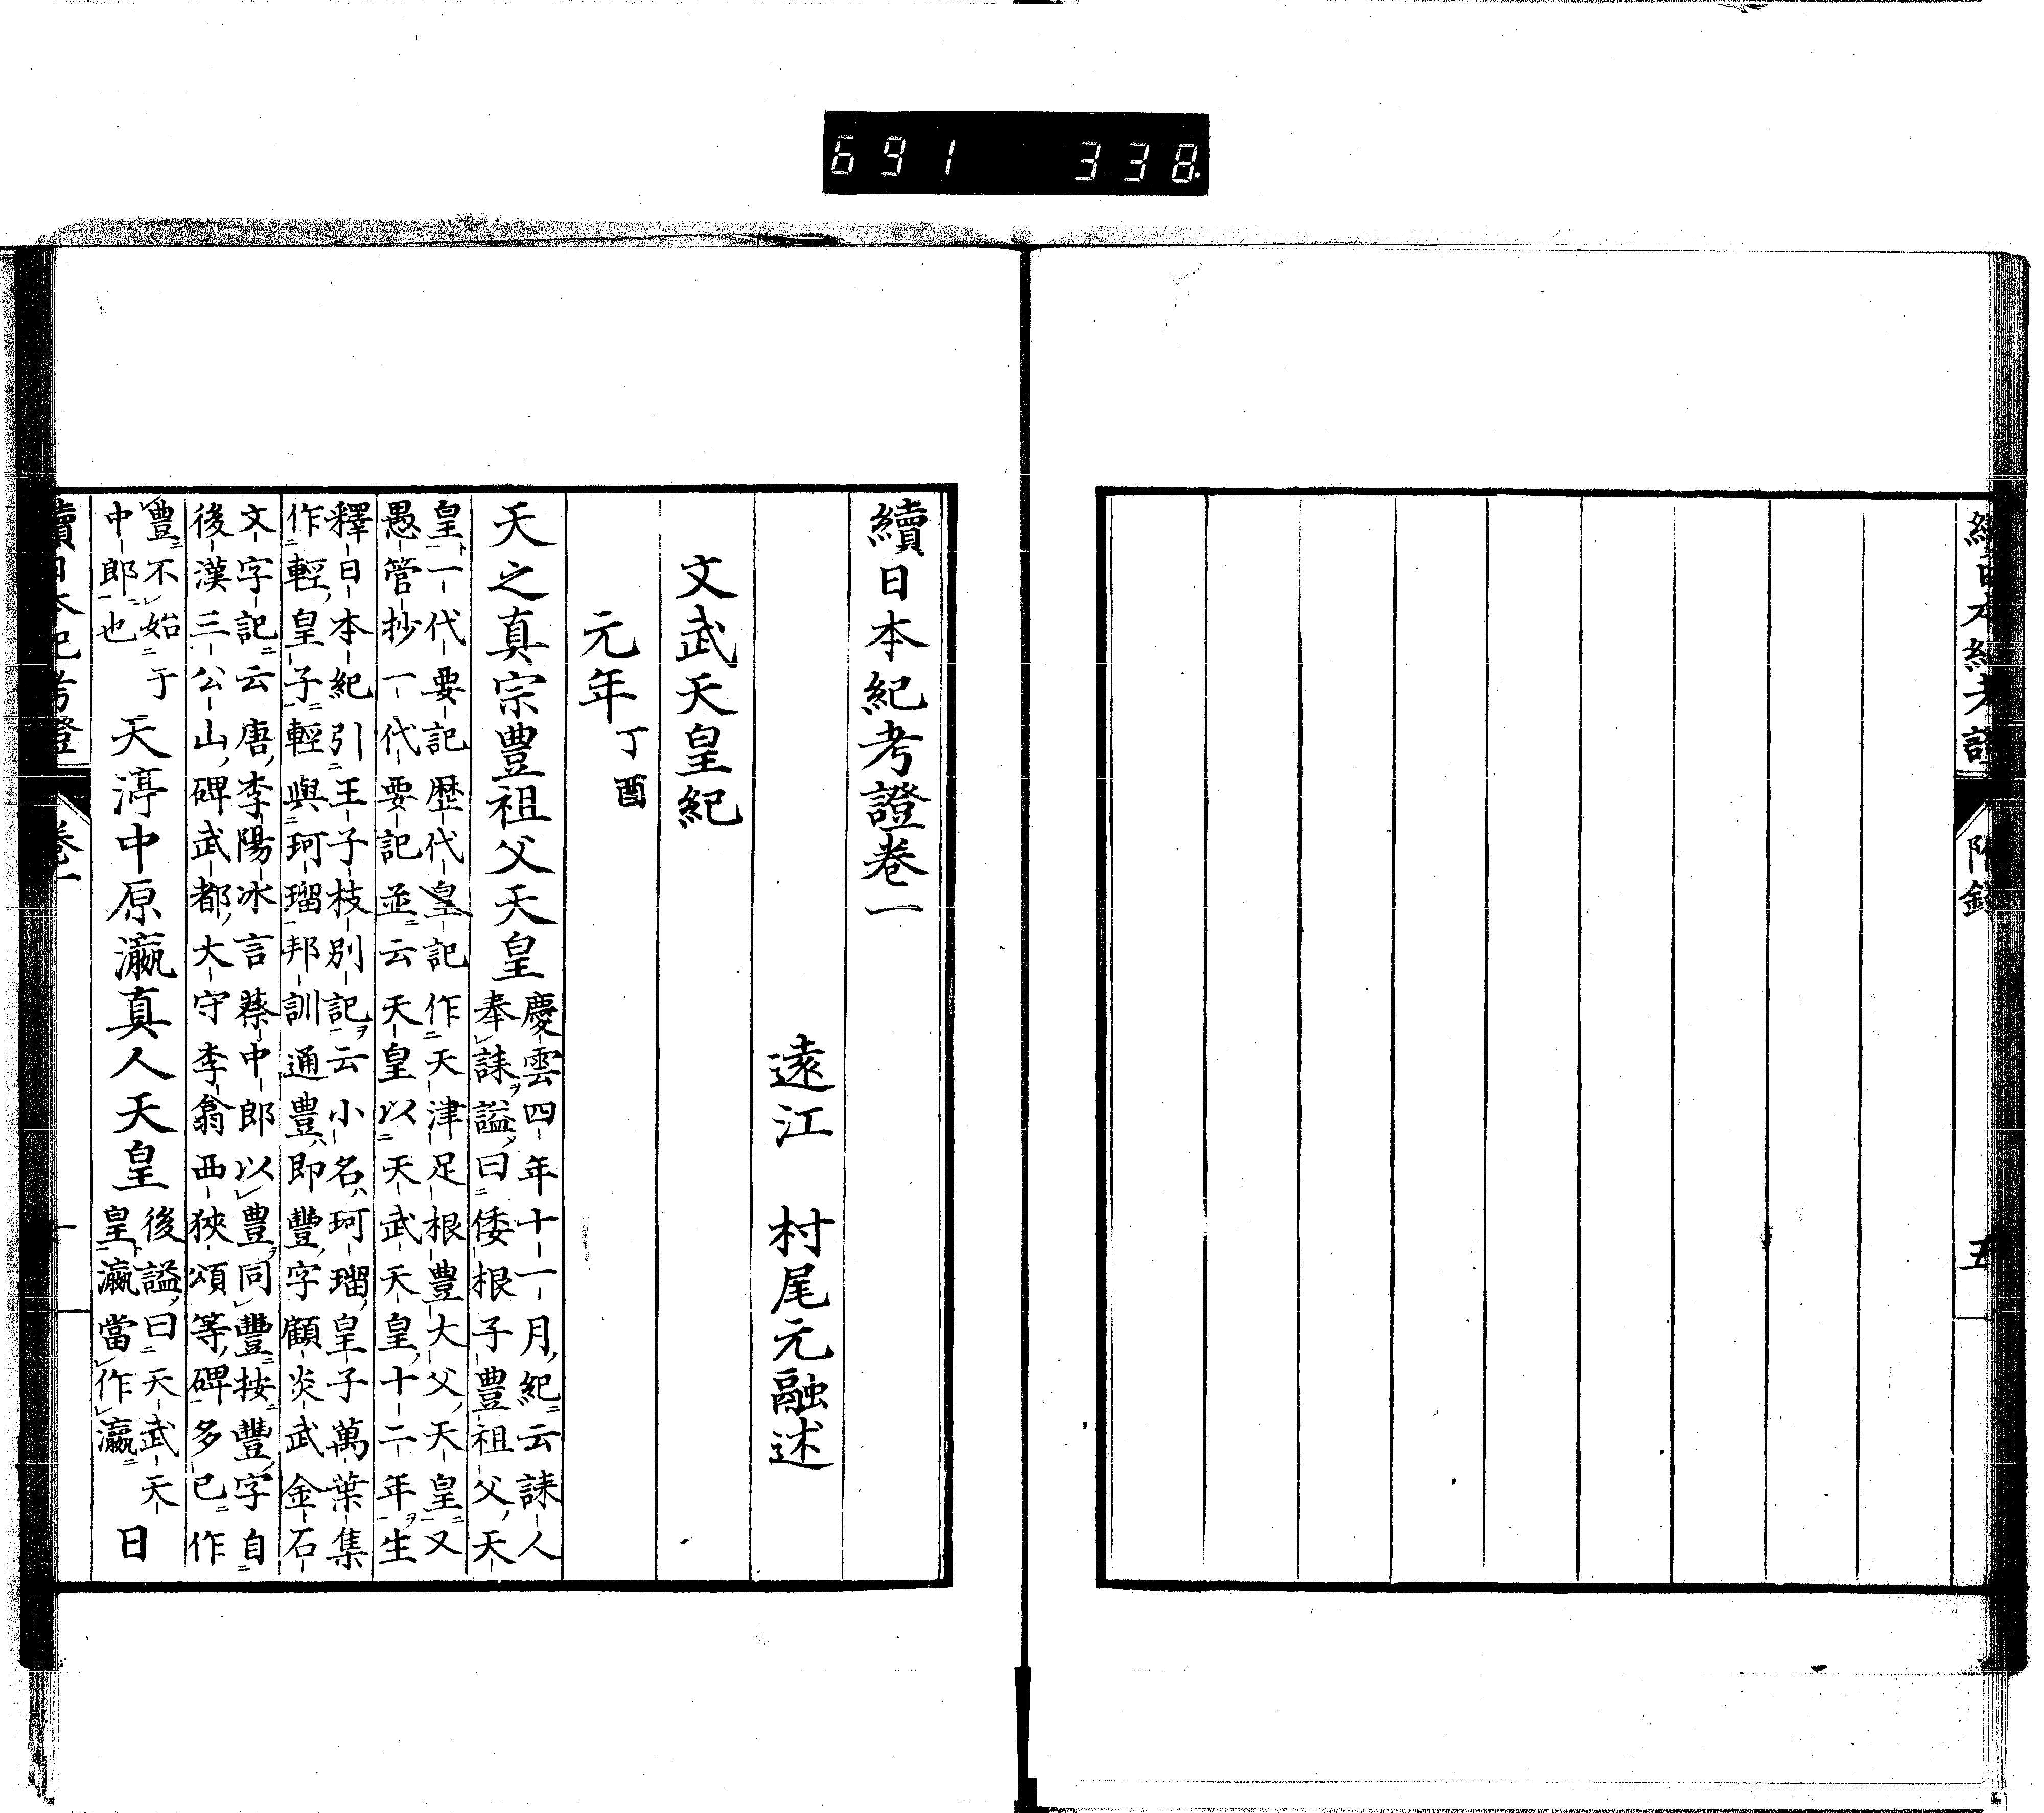 691 338
續日本紀考證
附錄
五
續日本紀考證卷一
遠江 村尾元融述
文武天皇紀
元年丁酉
天之真宗豊祖父天皇慶雲四年十一月紀云誄人
奉誄謚曰倭根子豊祖父天
皇一代要記歴代皇記作天津足根豊大父天皇又
愚管抄一代要記並云天皇以天武天皇十二年生
釋日本紀引王子枝別記云小名珂瑠皇子萬葉集
作輕皇子輕與珂瑠邦訓通豊即豐字顧炎武金石
文字記云唐李陽冰言蔡中郎以豊同豐按豐字自
後漢三公山碑武都大守李翕西狹頌等碑多已作
豊不始于
中郎也
天渟中原瀛真人天皇後謚曰天武天
皇瀛當作瀛
日
續日本紀考證
卷一
一